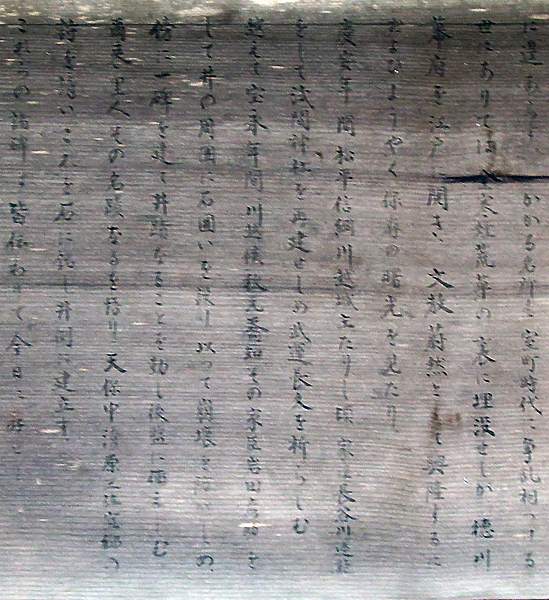 に遑あらず、かかる名所も室町時代に争乱相つぐる
世にありては 荒草の裏に埋没せしが 徳川
幕府を江戸に開き、文教蔚然として興隆するに
およびようやく保存の曙光を見たり、
慶安年間松平信綱川越城主たりし頃家臣長谷川
をして浅間神社を再建せしめ武運長久を祈らしむ
越えて宝永年間川越侯秋元喬知その家臣岩田 を
して井の周囲に石囲いを設け以って崩壊を防がしめ、
傍に一碑を建て井跡なることを勒し後世に伝えしむ
爾来里人その名蹟なるを誇り天保中
語を請いこれを石に記し井側に建立す
これらの諸碑は皆伝わりて今日に存し